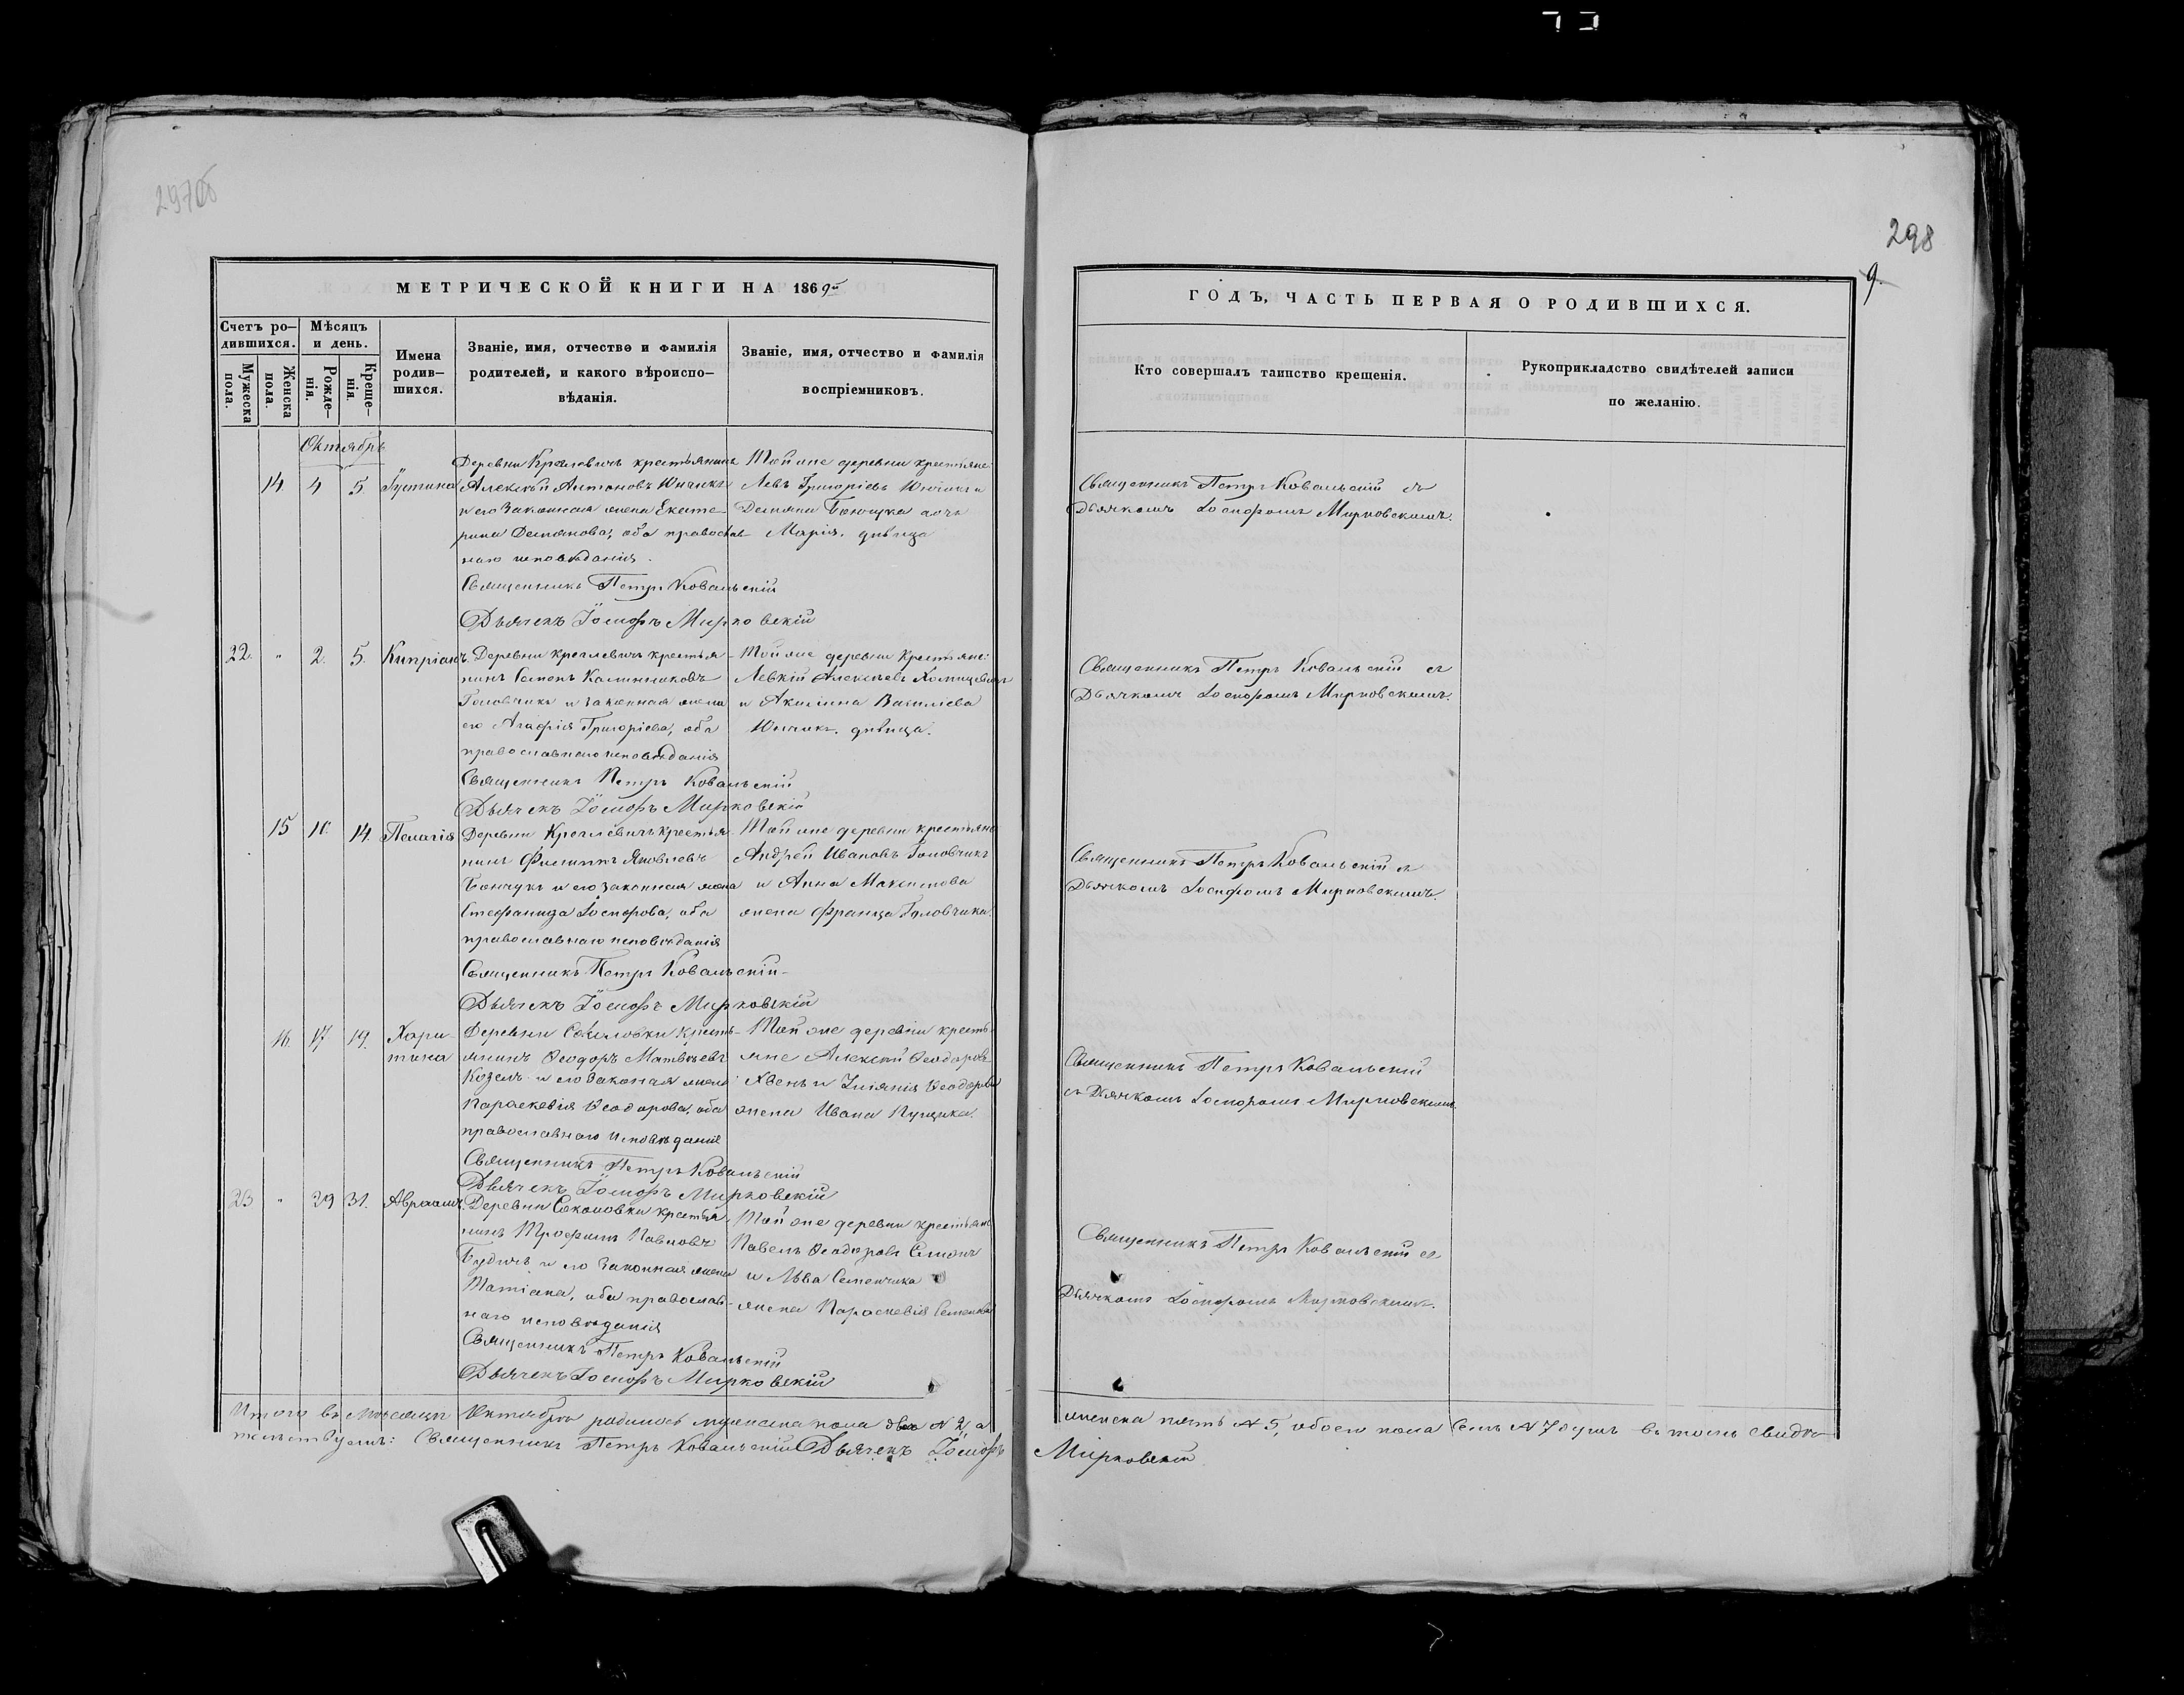 297об
298
9.
МЕТРИЧЕСКОЙ КНИГИ НА 1869й
Счетъ ро-
дившихся.
Мужеска
пола.
Женска
пола.
Мѣсяцъ
и день.
Рожде-
нія.
Креще-
нія.
Имена
родив-
шихся.
Званіе, имя, отчество и фамилія
родителей, и какого вѣроиспо-
вѣданія.
Званіе, имя, отчество и фамилія
воспріемниковъ.
ГОДЪ, ЧАСТЬ ПЕРВАЯ О РОДИВШИХСЯ.
Кто совершалъ таинство крещенія.
Рукоприкладство свидѣтелей записи
по желанію.
Октябрь
14. 4 5. Іустина
Деревни крестьянинъ
Алексѣй Антоновъ Юнчикъ
и его законная жена Екате-
рина Демянова, оба православ-
наго исповѣданія.
Священникъ Петръ Ковальскій
Дьячекъ Іосифъ Мирковскій
Той же деревни крестьяне:
Левъ Григоріевъ Юнчикъ и
Демяна дочь
Марія, дѣвица
Священникъ Петръ Ковальскій съ
Дьячкомъ Іосифомъ Мирковскимъ.
22. " 2. 5. Кипріанъ.
Деревни крестья-
нинъ Семенъ Калинниковъ
Головчикъ и законная жена
его Агафія Григорієва, оба
православнаго исповѣданія
Священникъ Петръ Ковальскій
Дьячекъ Іосифъ Мирковскій
Той же деревни крестьяне:
Левкій Алексѣевъ
и Акилина Василіева
Юнчикъ, дѣвица.
Священникъ Петръ Ковальскій съ
Дьячкомъ Іосифомъ Мирковскимъ.
15 11. 14. Пелагія
Деревни крестья-
нинъ Филиппъ Яковлевъ
и его законная жена
Стефанида Іосифова, оба
православнаго исповѣданія
Священникъ Петръ Ковальскій
Дьячекъ Іосифъ Мирковскій
Той же деревни крестьяне
Андрей Ивановъ Головчикъ
и Анна Максимова
жена Франца Головчика.
Священникъ Петръ Ковальскій съ
Дьячкомъ Іосифомъ Мирковскимъ.
16. 17. 19. Хари-
тина
Деревни кресть-
янинъ Ѳеодоръ Матвѣевъ
Козелъ и его законая жена
Параскевія Ѳеодорова, оба
православнаго исповѣданія
Священникъ Петръ Ковальскій
Дьячекъ Іосифъ Мирковскій
Той же деревни кресть-
яне Алексѣй Ѳеодоровъ
и Ѳеодорова
жена Ивана
Священникъ Петръ Ковальскій
съ Дьячкомъ Іосифомъ Мирковскимъ.
23 " 29 31. Авраамъ.
Деревни Соколовки крестья-
нинъ Трофимъ Павловъ
и его законная жена
Татіана, оба православ-
наго исповѣданія
Священникъ Петръ Ковальскій
Дьячекъ Іосифъ Мирковскій
Той же деревни крестьяне
Павелъ Ѳеодоровъ
и Льва Семенчика
жена Параскевія
Священникъ Петръ Ковальскій съ
Дьячкомъ Іосифомъ Мирковскимъ.
Итого въ Мѣсяцѣ Октябрѣ родилось мужеска пола два N 2, а
женска пять N 5, обоего пола семь N 7 душъ въ томъ свидѣ-
тельствуемъ: Священникъ Петръ Ковальскій Дьячекъ Іосифъ
Мирковскій